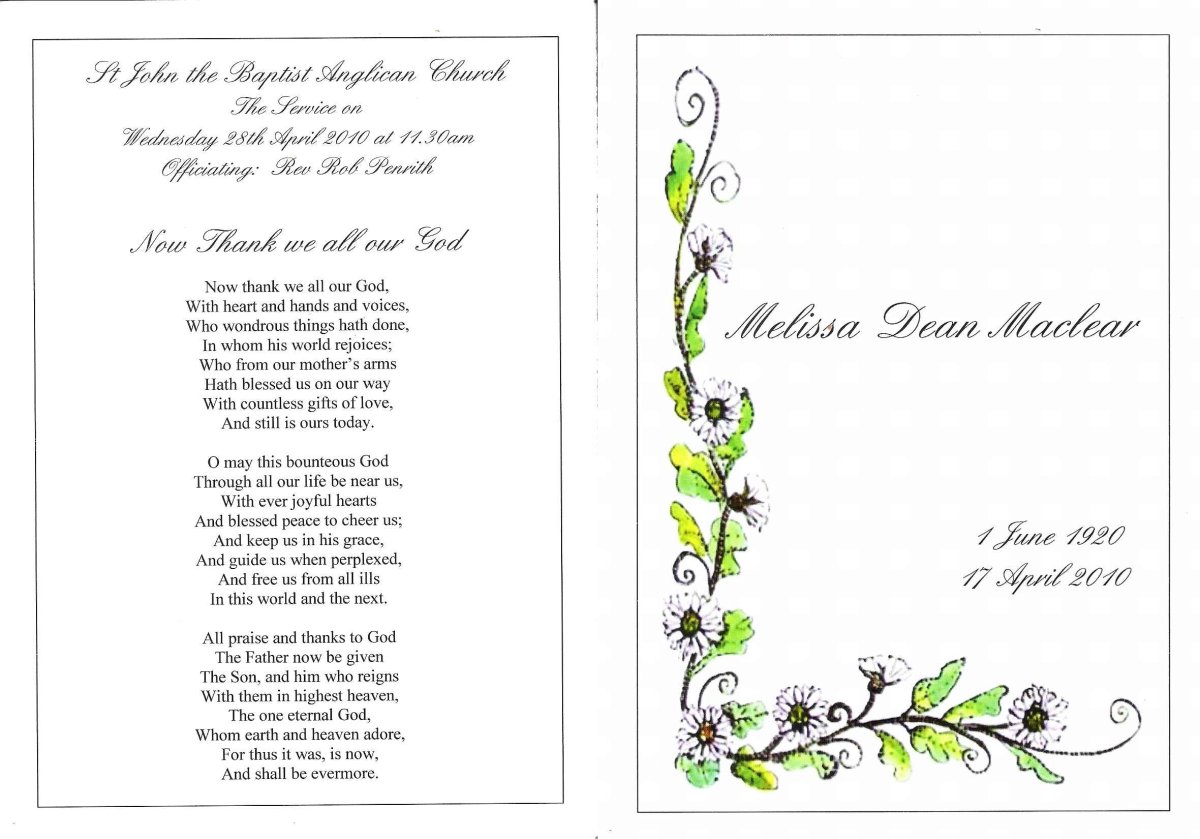 St John the Baptist Anglican Church
The Service on
Wednesday 28th April 2010 at 11.30am
Officiating: Rev Rob Penrith
Now Thank we all our God
Now thank we all our God,
With heart and hands and voices,
Who wondrous things hath done,
In whom his world rejoices;
Who from our mother's arms
Hath blessed us on our way
With countless gifts of love,
And still is ours today.
O may this bounteous God
Through all our life be near us,
With ever joyful hearts
And blessed peace to cheer us;
And keep us in his grace,
And guide us when perplexed,
And free us from all ills
In this world and the next.
All praise and thanks to God
The Father now be given
The Son, and him who reigns
With them in highest heaven,
The one eternal God,
Whom earth and heaven adore,
For thus it was, is now,
And shall be evermore.
Melissa Dean Maclear
1 June 1920
17 April 2010